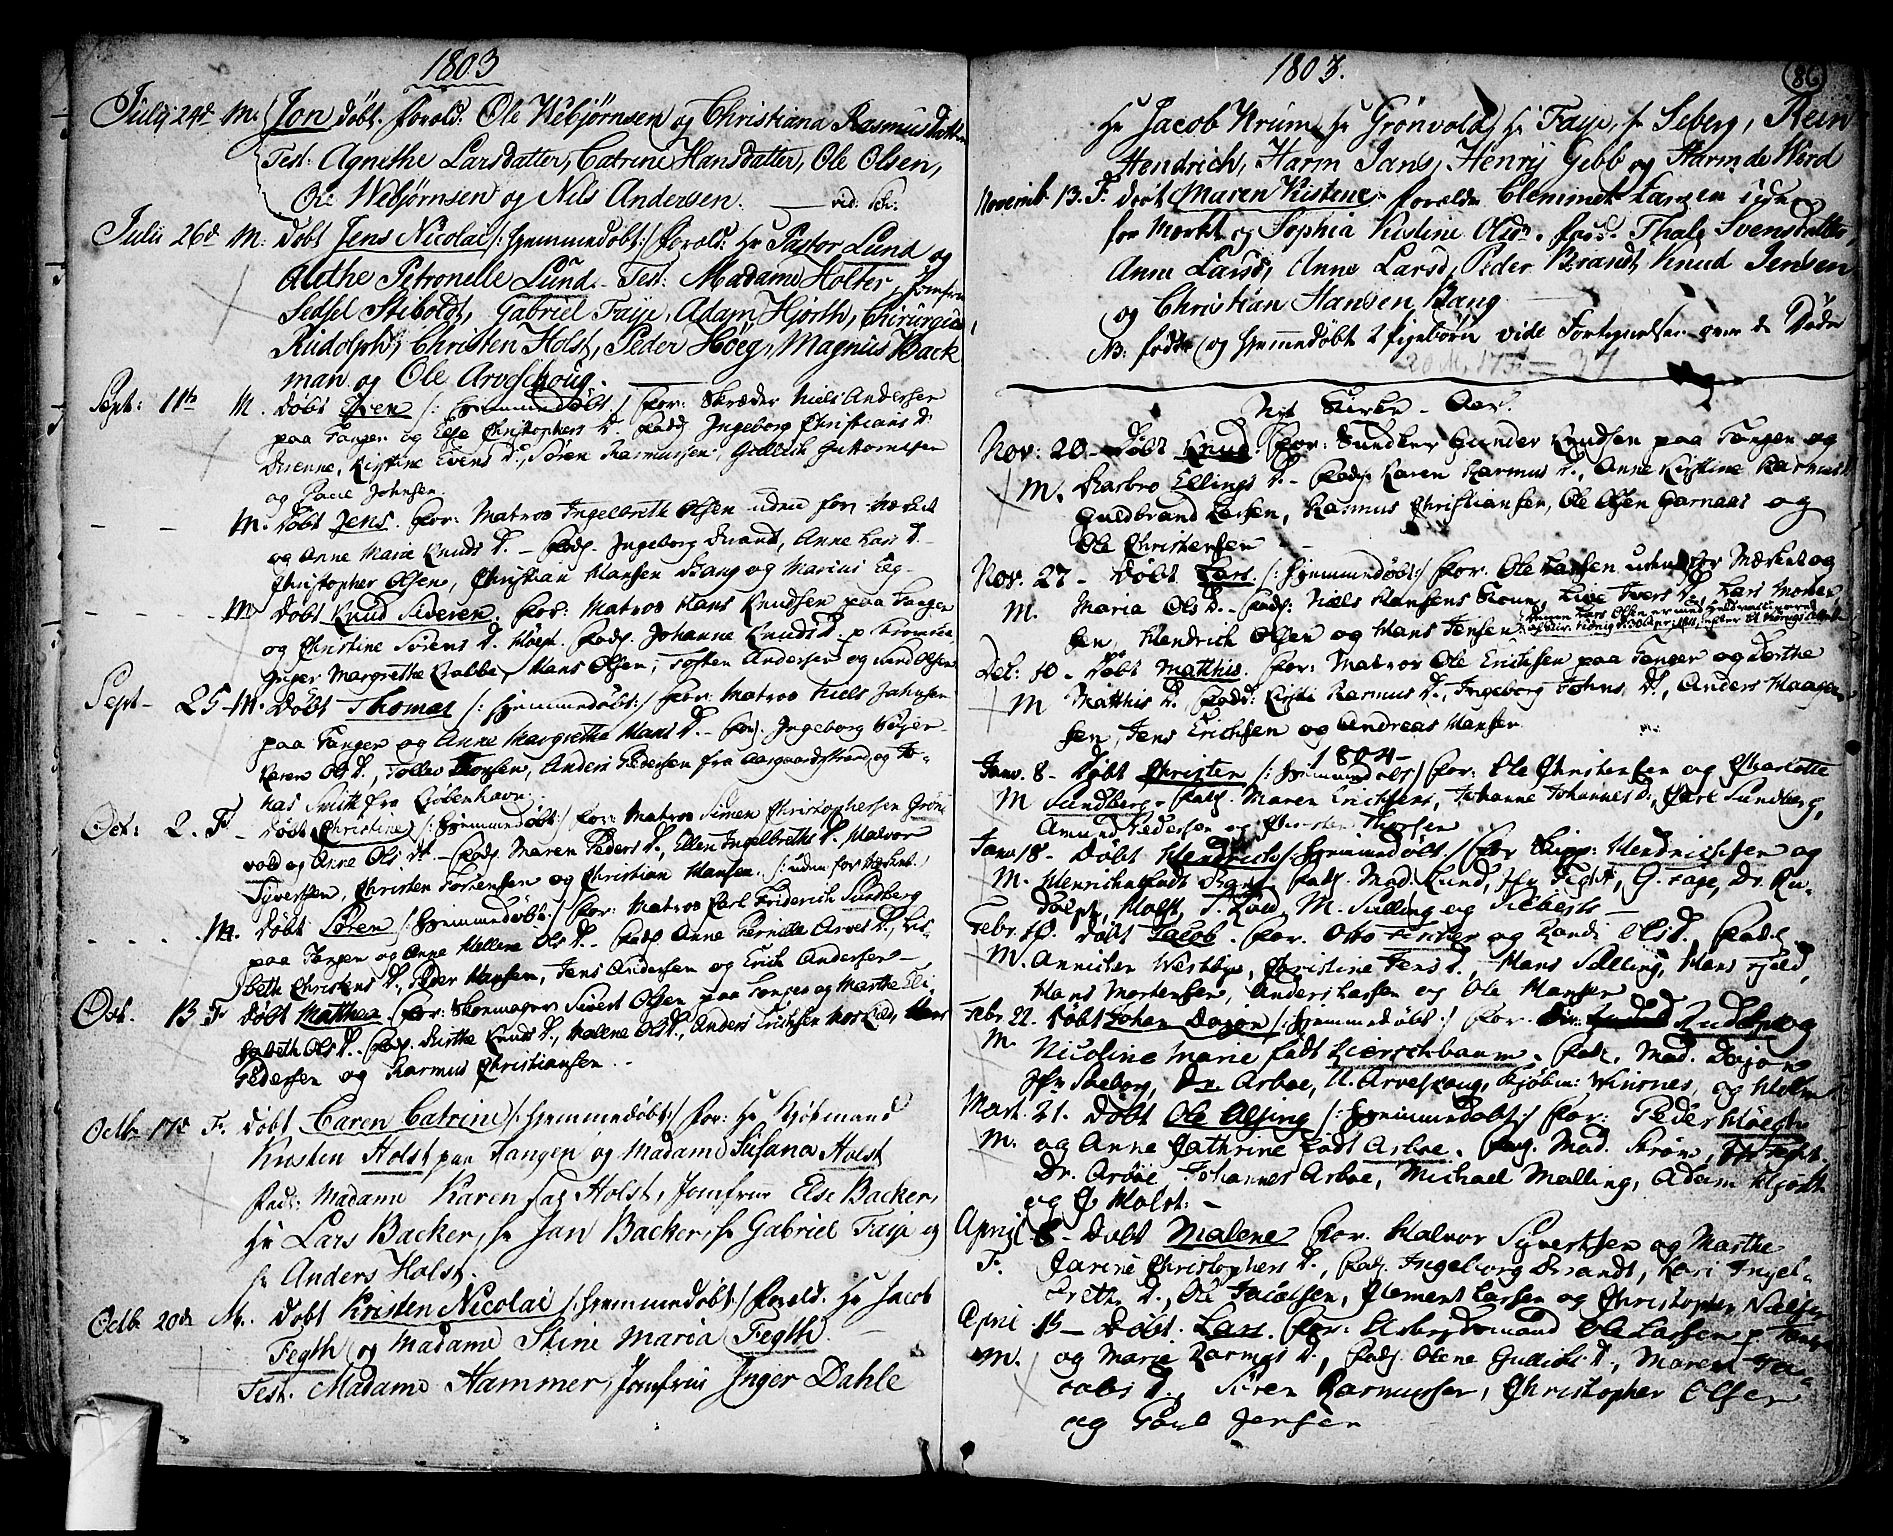 1803
July 24de M. Jon døbt. foræld. Ole Webjørnsen og Christiana Rasmusdatter
Test: Agnethe Larsdatter, Catrine Hansdatter, Ole Olsen,
Ole Webjørnsen og Nils Andersen. — vid. 
Julii 26de M: døbt Jens Nicolai /: hjemmedøbt :/ foræld: Hr Pastor Lund og
Alethe Petronelle Lund. Test: Madame Holter, Jomfru
Sedsel Stiboldt, Gabriel Faye, Adam Hjorth, Chirurgus
Rudolph, Christen Holst, Peder Höeg, Magnus Back
man og Ole Arveschoug.
Sept: 11te M. Døbt Even /: hjemmedøbt / For: Skræder Niels Andersen
paa Tangen og Else Christophers D. Fadd. Ingeborg Christians D.
Kirstine Evens D., Søren Rasmussen, Gulbrich Guttormsen
og Poul Johnsen
— — M. Døbt Jens. For: Matros Ingelbreth Olsen uden for Mærket
og Anne Marie Knuds D. — Fadd. Ingeborg Brandt, Anne Lars D. —
Christopher Olsen, Christian Hansen Bang og Marius Eeg —
— — M. Døbt Knud Severen. For: Matros Hans Knudsen paa Tangen
og Christine Sørens D. Fadd. Johanne Knuds D.
Inger Margrethe Krabbe, Hans Olsen, Tosten Andersen og
Sept — 25 — M. Døbt Thomas /: hjemmedøbt :/ For: Matros Niels Johnsen
paa Tangen og Anne Margrethe Hans D. — Fad. Ingeborg
Karen Ols D., Tollev Thorsen, Anders Pedersen fra Aasgaardstrand og Jo-
nas Smith fra Kjøbenhavn.
Oct: 2. F. — Døbt Christine /: hjemmedøbt :/ For: Matros Simen Christophersen Grøn-
vold og Anne Ols D. — Fad. Maren Peders D., Ellen Ingelbreths D. Halvor
Syvertsen, Christen Torkensen og Christian Hansen. /: uden for Mærket./
— — M. Døbt Søren /: hjemmedøbt :/ For: Matros Carl Friderich Sundberg
paa Tangen og Anne Hellene Ols D. — Fad. Anne Pernille Arves D., Lis-
beth Christens D., Peder Hansen, Jens Andersen og Erich Andersen —
Oct. 13 F Døbt Mathea. For: Skomager Sivert Olsen paa Tangen og Marthe Eli-
sabeth Ols D. Fad. Birthe Knuds D., Malene Ols D., Anders Erichsen
Pedersen og Rasmus Christiansen.
Octb 17de F. døbt Caren Catrine /: hjemmedøbt :/ For: Hr Kjøbmand
Kristen Holst paa Tangen og Madame Susana Holst
Fad: Madame Karen Holst, Jomfru Else Backer,
Hr Lars Backer, Hr Jan Backer, Hr Gabriel Faye og
Hr Anders Holst.
Octb 20de M. døbt Kristen Nicolai /: hjemmedøbt :/ foræld: Hr Jacob
Fegth og Madame Stine Maria Fegth. —
Test. Madame Hammer, Jomfru Inger Dahle
1803.
86
Hr Jacob Krum, Hr Grönvold, Hr Faye, Hr Seberg, Rein
Hendrich, Harm Jans, Henry Gebb og Harm de Word
Novemb. 13. F. døbt Maren Kistene. forælder Clemmet Larsen uden
for Merket og Sophia Kistine Olsdr. fad. Thale Svensdatter,
Anne Larsd, Anne Larsd, Peder Brandt, Knud Jensen
og Christian Hansen Bang
NB: fødte og hjemmedøbt 2 Pigebörn vide Fortegnelsen over de Døde
20 M, 17 F = 37
Nyt Kirke-Aar.
Nov: 20 — Døbt Knud. For: Gunder Knudsen paa Tangen og
M. Barbro Ellings D. — Fadd. Karen Rasmus D., Anne Kistine Rasmus D.
Guldbrand Larsen, Rasmus Christiansen, Ole Olsen Garnaas og
Ole Christensen
Nov. 27 — Døbt Lars /: hjemmedøbt :/ For. Ole Larsen uden for Mærket og
M. Maria Ols D. — Fadd: Niels Hansens Kone, Live Ivers D., Lars Morten
sen, Hendrich Olsen og Hans Jensen
Dec: 10 — Døbt Matthis. For: Matros Ole Erichsen paa Tangen og Dorthe
M Matthis D. Fadd: Kisti Rasmus D., Ingeborg Johns D., Anders Haagen
sen, Jens Erichsen og Andreas Hansen
1804 —
Janv. 8 — Døbt Christen /: hjemmedøbt / For: Ole Christensen og Charlotte
M Sundberg. Fad. Maren Erichsens, Johanne Johannes D., Carl Sundberg,
Amund Pedersen og Christen Thorsen
Janv 18 — Døbt Hendrich /: hjemmedøbt / For Skipp: Hendrichsen og
M. Henricha født Fad. Mad. Lund, Hr Fight, G. Faye, Dr. Ru-
dolph, Holst, M. Sulling og
Febr. Døbt Jacob. For. Otto og Randi Ols D. Fad.
M. Annichen Westbye, Christine Jens D., Hans Sulling, Hans Fjeld,
Hans Mortensen, Anders Larsen og Ole Hansen
Febr 22. Døbt Johan Dajon /: hjemmedøbt :/ For. Rudolph og
M. Nicoline Marie født Kierschbaum. Fad. Mad. Dajon
Hr Saeborg, Dr. Arboe, A. Arveskoug, Kjöbm: Winsnes, og Holm
Mart. 21. Døbt Ole Alsing /: hjemmedøbt :/ For: Peder Höegh
M. og Anne Cathrine født Arboe. Fad. Mad. Krøn, Hr Fight,
Dr. Arboe, Johannes Arboe, Michael Malling, Adam Hjorth
og C Holst. —
April 8 — Døbt Malene For. Halvor Syvertsen og Marthe
F. Carine Christophers D., Fad. Ingeborg Brandt, Kari Ingel-
breths D., Ole Jacobsen, Clement Larsen og Christopher Nielsen
April 15 — Døbt Lars. For: Arbeydsmand Ole Larsen p Tangen
M. og Marie Rasmus D., Fad. Olene Gullichs D., Maren Ja-
cobs D., Sören Rasmussen, Christopher Olsen
og Poul Jensen